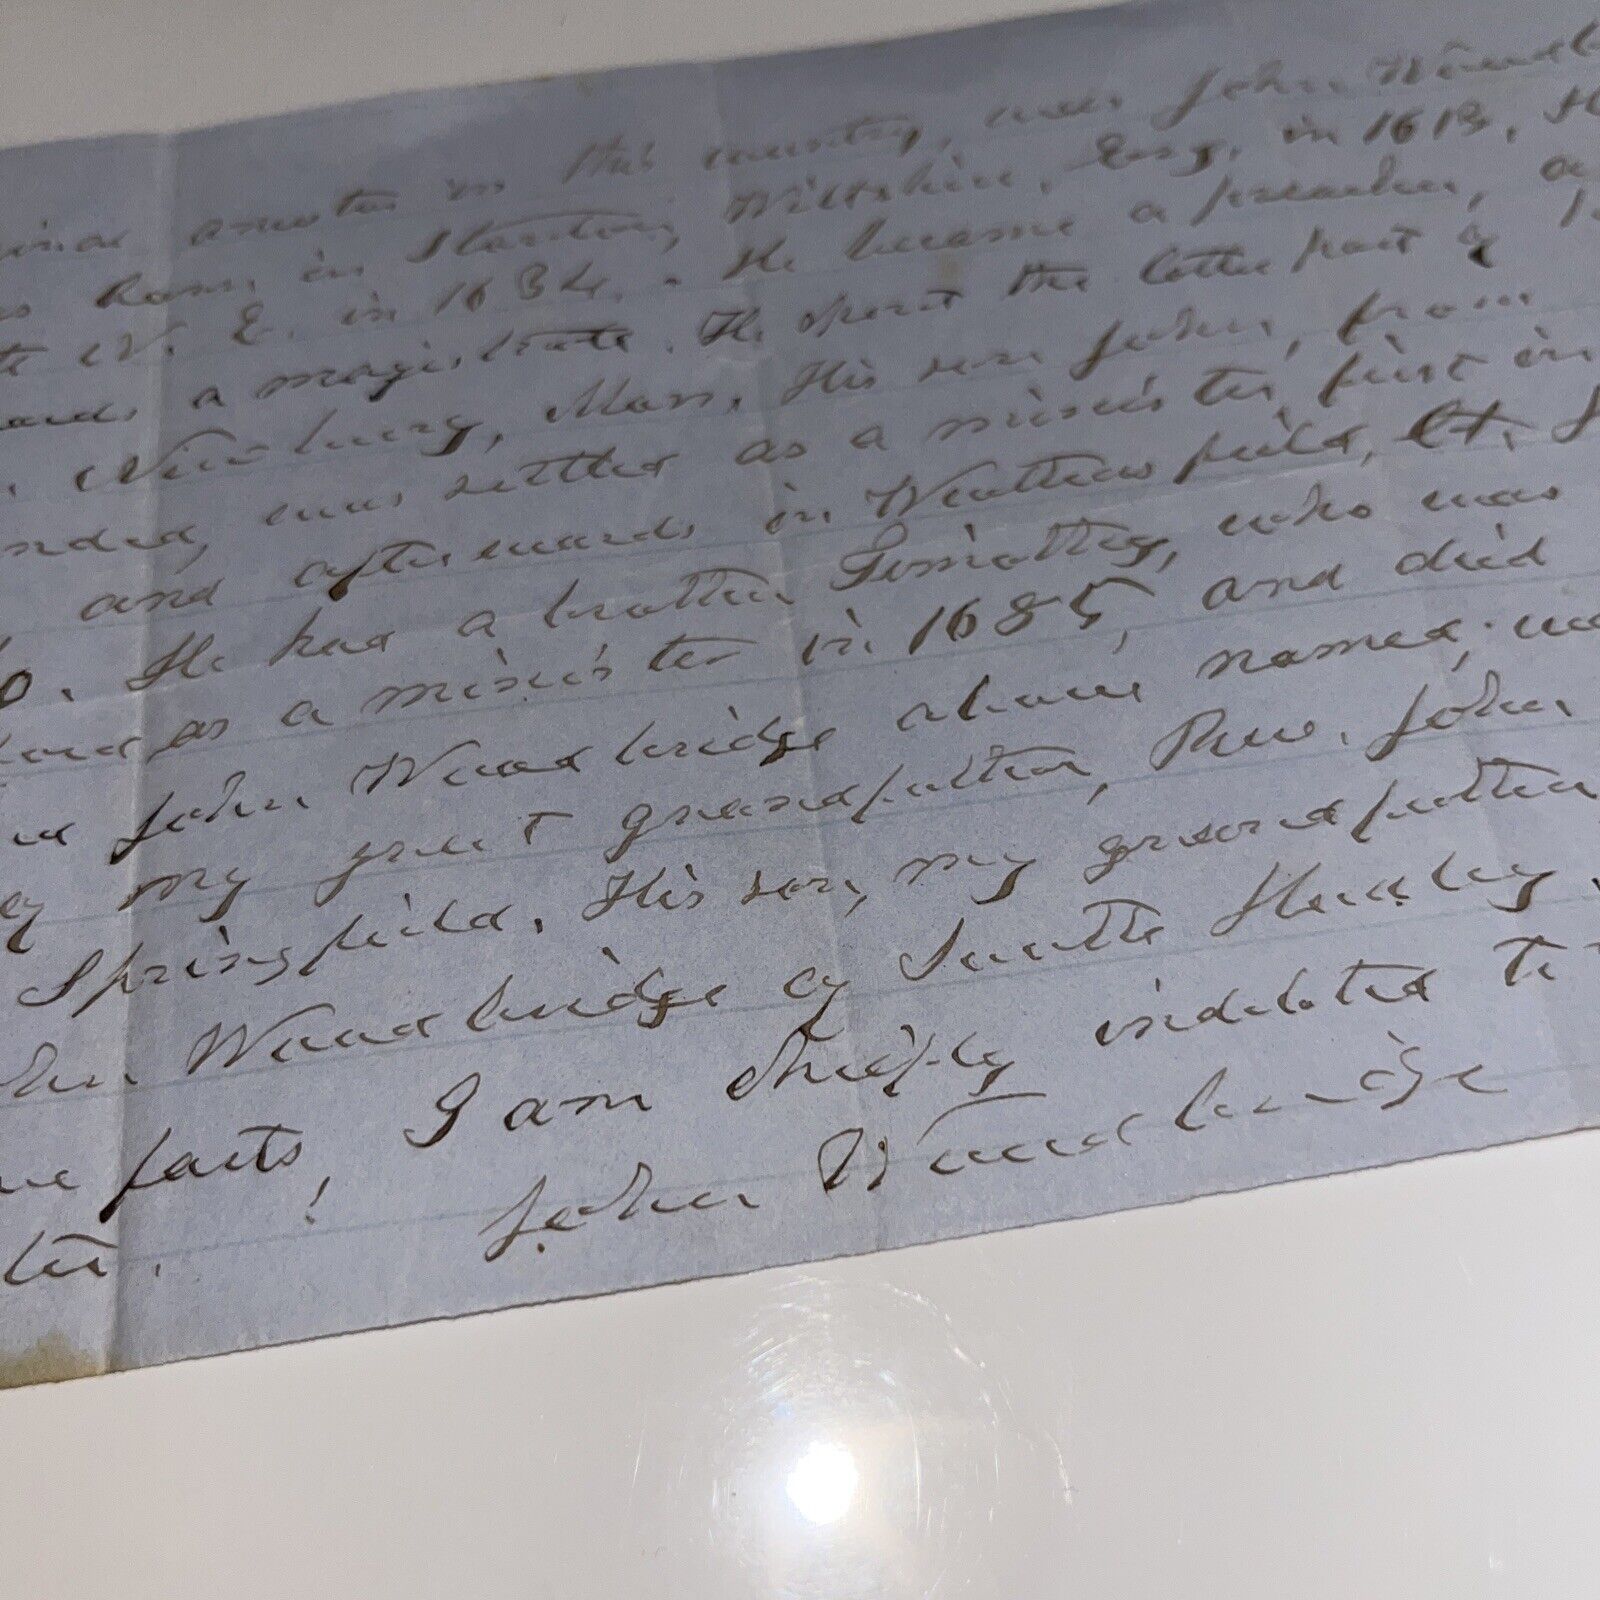 ancestor in this country, was John Woodb
born in Stanton, Wiltshire, Eng. in 1613. H
to N. E. in 1634. - He became a preacher,
wards a magistrate. He spent the latter part of
Newbury, Mass. His son John, from
ended, was settled as a minister, first in
and afterwards in Weathersfield, Ct.
He had a brother Timothy, who was
as a minister in 1685, and died
John Woodbridge above named, was
my great grandfather, Rev. John
Springfield. His son, my grandfather
Woodbridge of South Hadley.
facts, I am chiefly indebted to
John Woodbridge